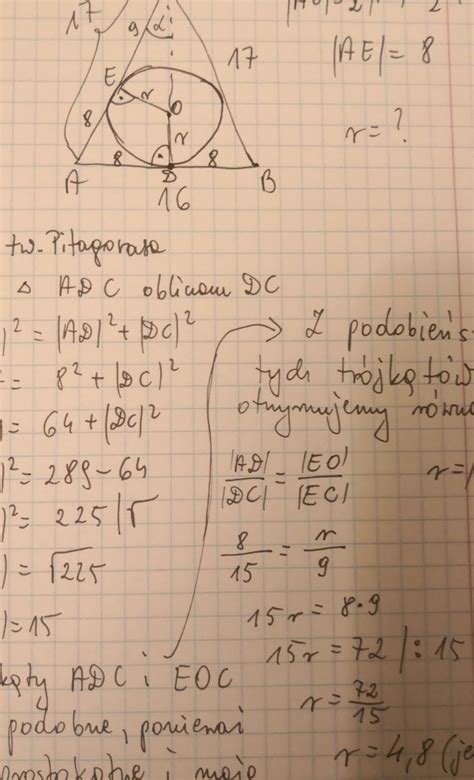 17
9
α
17
E
r
O
8
r
8
8
A
D
B
16
|AE| = 8
r = ?
tw. Pitagorasa
△ ADC obliczam DC
|² = |AD|² + |DC|²
= 8² + |DC|²
= 64 + |DC|²
|² = 289 - 64
|² = 225 |√
| = √225
| = 15
Z podobieńs
tych trójkątów
otrzymujemy równo
|AD| / |DC| = |EO| / |EC|
r =
8/15 = r/9
15r = 8·9
15r = 72 |: 15
r = 72/15
r = 4,8 (je
kąty ADC i EOC
podobne, ponieważ
prostokątne i mają